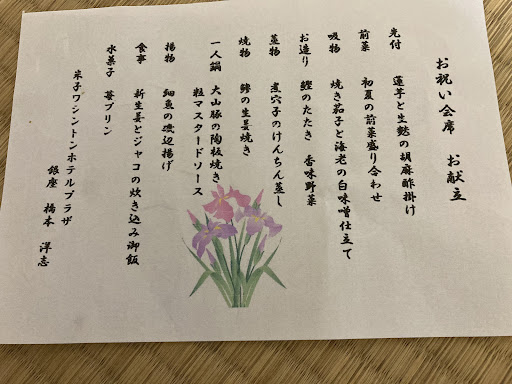 お祝い会席　お献立
先付　蓮芋と生麩の胡麻酢掛け
前菜　初夏の前菜盛り合わせ
吸物　焼き茄子と海老の白味噌仕立て
お造り　鰹のたたき　香味野菜
蒸物　煮穴子のけんちん蒸し
焼物　鱒の生姜焼き
一人鍋　大山豚の陶板焼き
粒マスタードソース
揚物　細魚の磯辺揚げ
食事　新生姜とジャコの炊き込み御飯
水菓子　苺プリン
米子ワシントンホテルプラザ
銀座　橋本　洋志